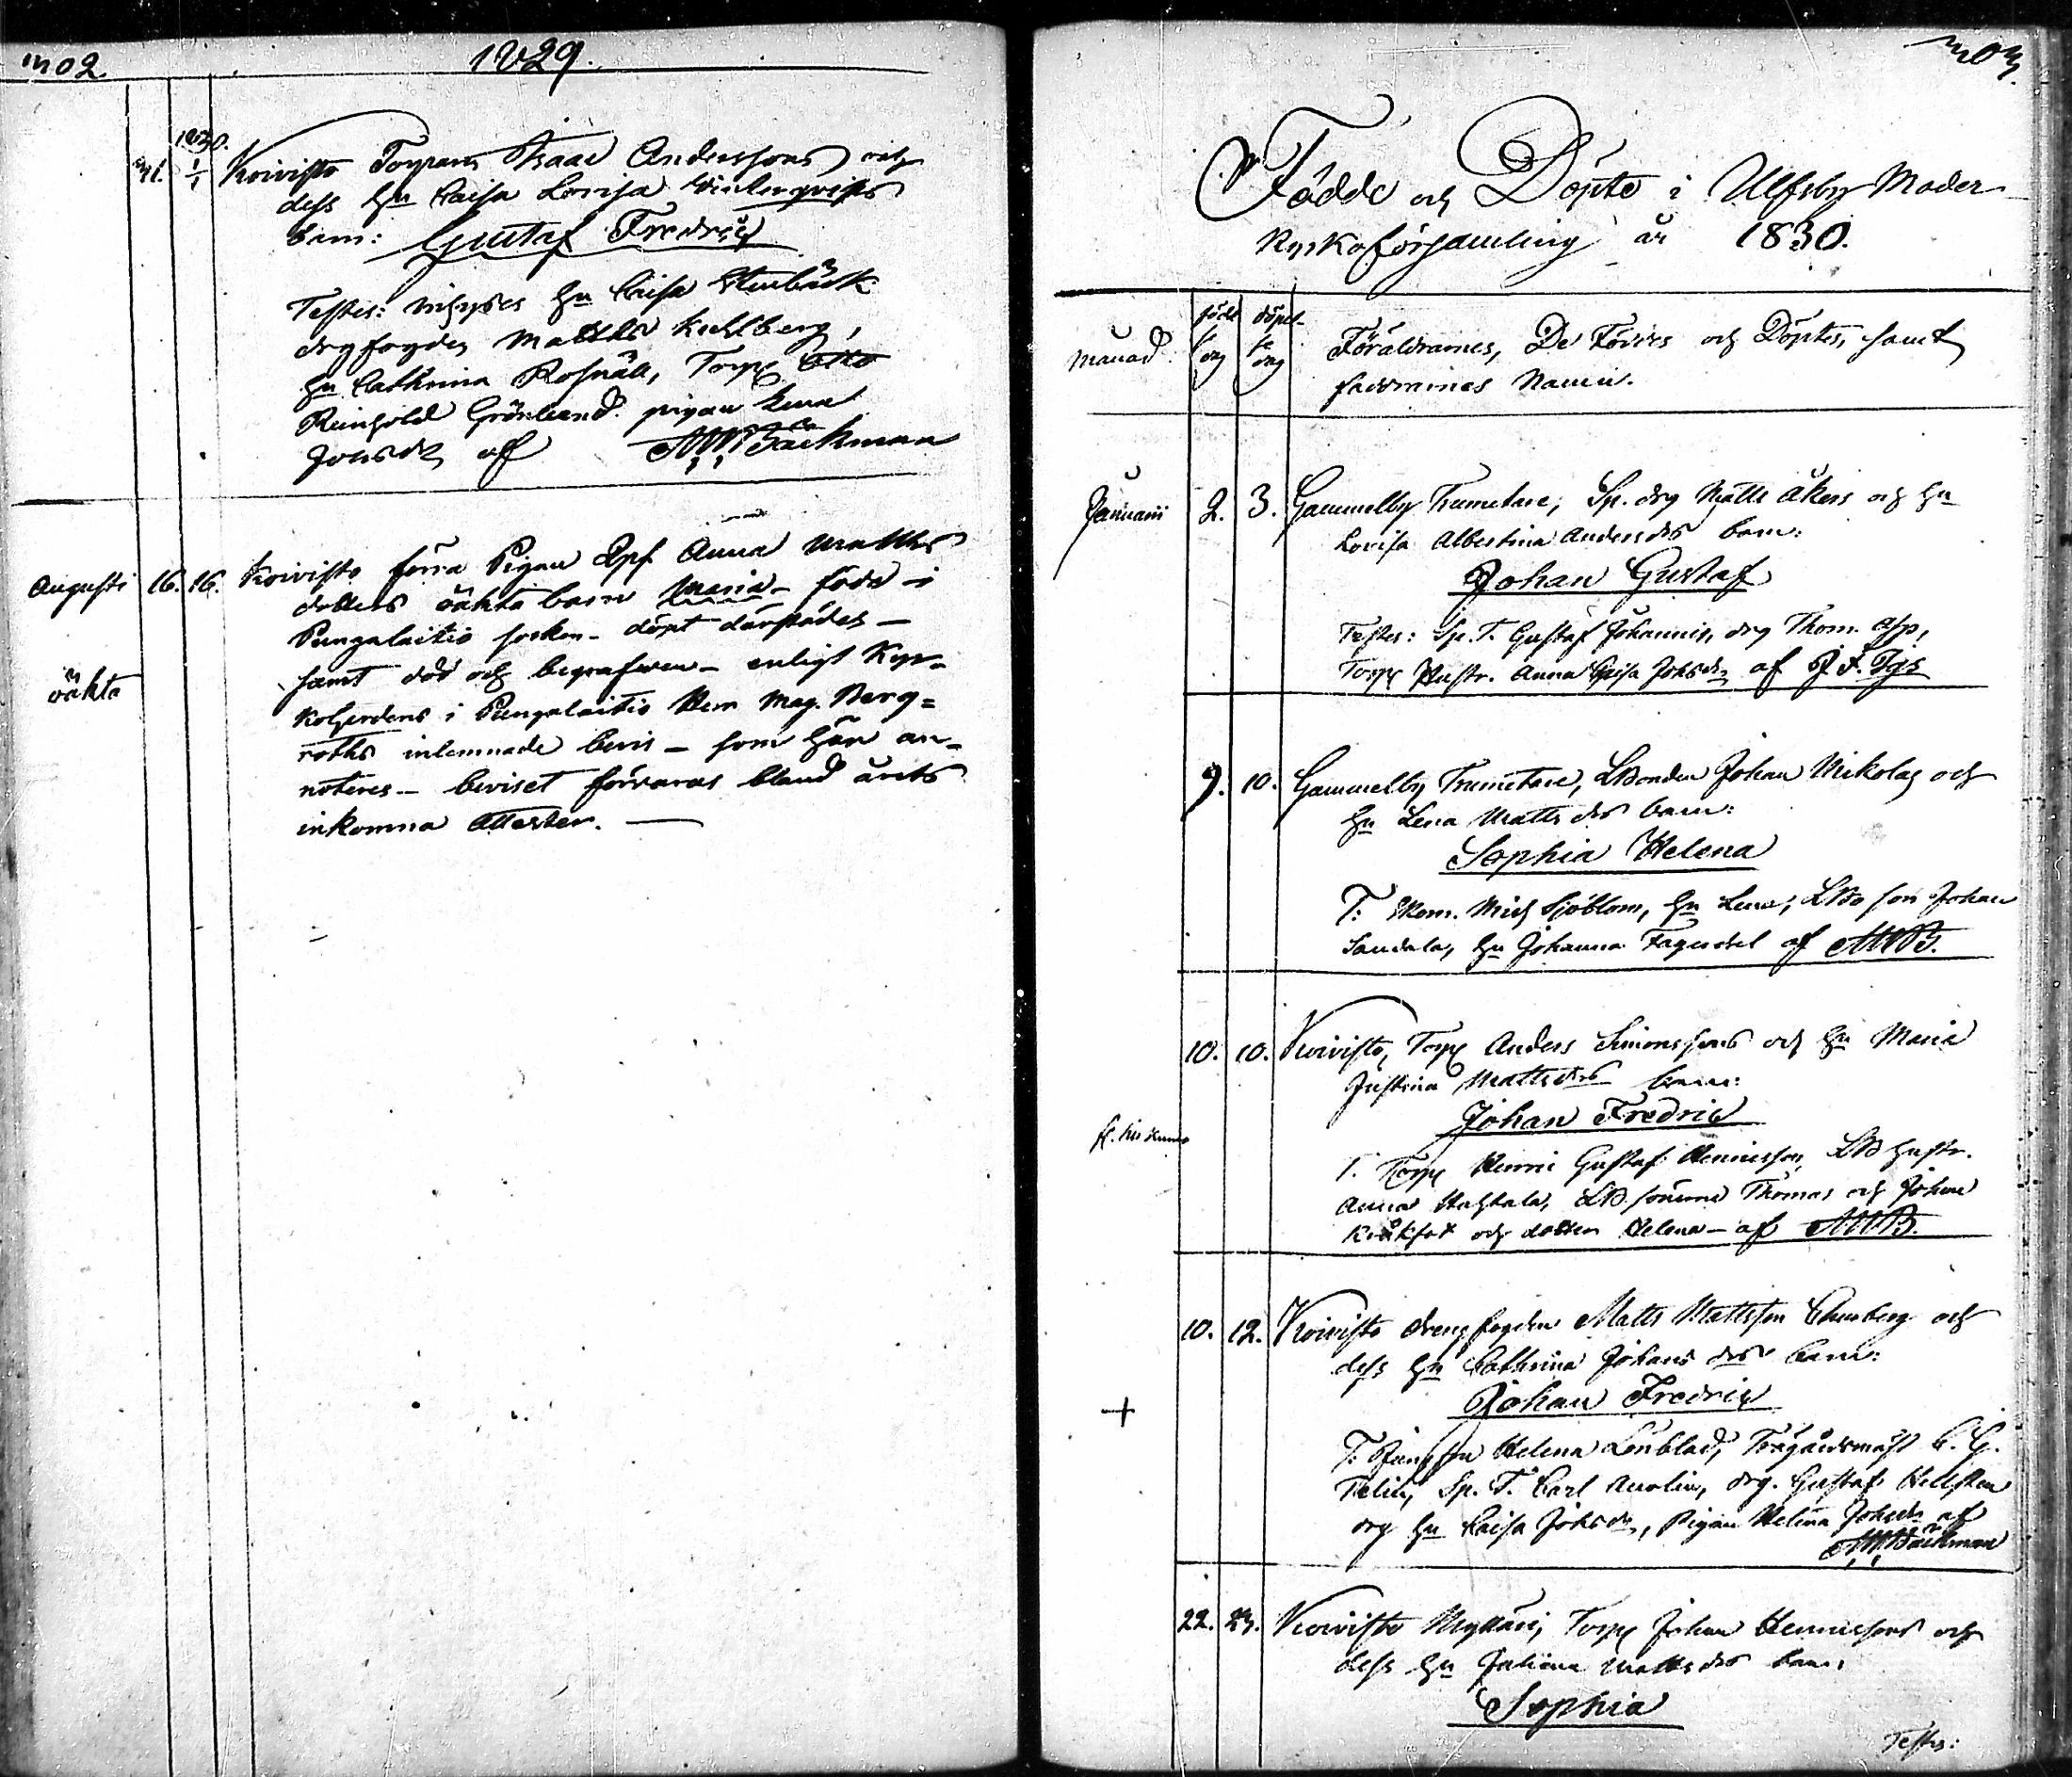 302.
1829.
1830.
31. 1/1 Koivisto Torparen Isaac Anderssons och
dess hu Caisa Lovisa Winterqvists
barn: Gustaf Fredric
Testes: hu Caisa Stenbäck
drgfogden Matths Kihlberg,
hu Cathrina Rosnäll, Torp Otto
Reinhold Grönlund. pigan Lena
Johsdr af MWBäckman
Augusti 16. 16. Koivisto förra Pigan Anna Matths
dotters oäkta barn Maria – född i
Pungalaitio socken – döpt därstädes –
oäkta
samt död och begrafwen – enligt Kyr-
koherdens i Pungalaitio Herr Mag. Berg=
roths inlemnade bevis – som här an-
noteres – beviset förvaras bland årets
inkomna Attester. —
303.
Födde och Döpte i Ulfsby Moder-
kyrkoförsamling år 1830.
Månad. född dag döpt dag Föräldrarnes, De Föddes och Döptes, samt
faddrarnes Namn.
Januarii 2. 3. Gammelby Trumetare, Sp. drg Matts Åkers och hu
Lovisa Albertina Andersdrs barn:
Johan Gustaf
Testes: Sp. T. Gustaf Johannis, drg Thom. Asp,
Torp Hustr. Anna Caisa Johsdr af
9. 10. Gammelby Trumetare, LBonden Johan Nikolas och
hu Lena Matts drs barn:
Sophia Helena
T: Skom. Mich Sjöblom, hu Lena, LBo son Johan
Sandala, hu Johanna Fagerdel af MWB.
10. 10. Koivisto, Torp Anders Simonssons och hu Maria
Justina Mattsdrs barn:
Johan Fredric
T. Torp Henric Gustaf Henricsson, LB hustr.
Anna LB sönerne Thomas och Johan
och dotter Helena – af MWB.
10. 12. Koivisto drengfogden Matts Mattsson och
dess hu Cathrina Johans drs barn:
Johan Fredric
+
T: Helena Lönblad, Trägårdsmäst C. G.
Felin, Sp. T. Carl drg. Gustaf Hellsten
drg hu Caisa Johsdr, Pigan Helena Johsdr af
MWBäckman
22. 23. Koivisto Mylläri, Torp Johan Henricssons och
dess hu Juliana Mattsdrs barn:
Sophia
Testes: